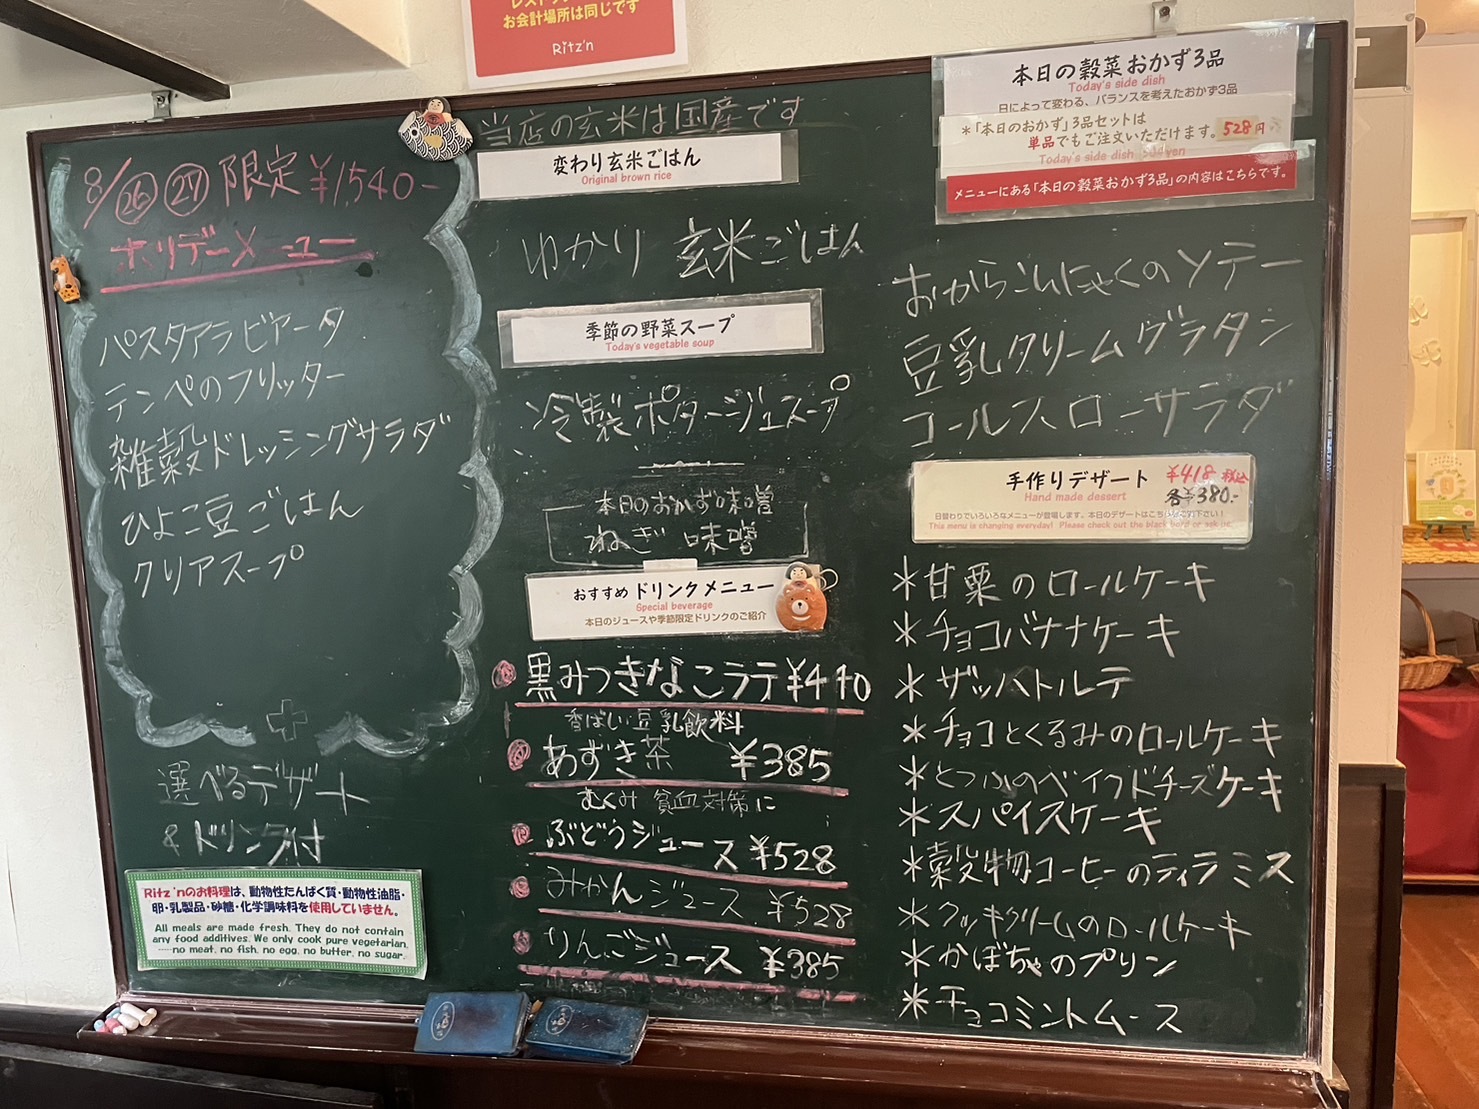 お会計場所は同じです
Ritz'n
8/㉖㉗限定¥1,540-
ホリデーメニュー
パスタアラビアータ
テンペのフリッター
雑穀ドレッシングサラダ
ひよこ豆ごはん
クリアスープ
+
選べるデザート
&ドリンク付
Ritz'nのお料理は、動物性たんぱく質・動物性油脂・
卵・乳製品・砂糖・化学調味料を使用していません。
All meals are made fresh. They do not contain
any food additives. We only cook pure vegetarian.
……no meat, no fish, no egg, no butter, no sugar.
当店の玄米は国産です
変わり玄米ごはん
Original brown rice
ゆかり 玄米ごはん
季節の野菜スープ
Today's vegetable soup
冷製ポタージュスープ
本日のおかず味噌
ねぎ 味噌
おすすめドリンクメニュー
Special beverage
本日のジュースや季節限定ドリンクのご紹介
黒みつきなこラテ¥440
香ばしい豆乳飲料
あずき茶 ¥385
むくみ 貧血対策に
ぶどうジュース ¥528
みかんジュース ¥528
りんごジュース ¥385
本日の穀菜おかず3品
Today's side dish
日によって変わる、バランスを考えたおかず3品
*「本日のおかず」3品セットは
単品でもご注文いただけます。528円
Today's side dish
メニューにある「本日の穀菜おかず3品」の内容はこちらです。
おからこんにゃくのソテー
豆乳クリームグラタン
コールスローサラダ
手作りデザート ¥418 税込
Hand made dessert 各¥380-
日替わりでいろいろなメニューが登場します。本日のデザートは
This menu is changing everyday! Please check out the black board or ask us.
*甘栗のロールケーキ
*チョコバナナケーキ
*ザッハトルテ
*チョコとくるみのロールケーキ
*とうふのベイクドチーズケーキ
*スパイスケーキ
*穀物コーヒーのティラミス
*クッキクリームのロールケーキ
*かぼちゃのプリン
*チョコミントムース